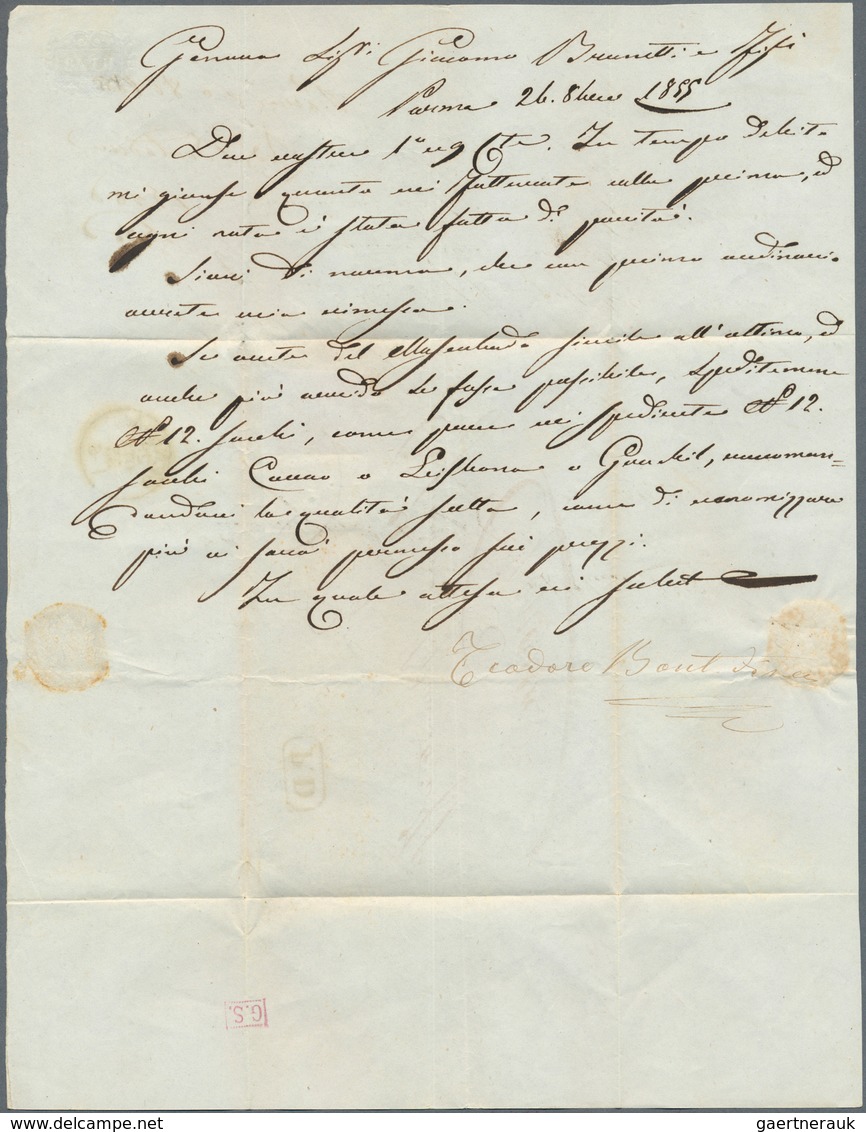 Genova Sigri Giacomo Brunetti e
Parma 26. 8bre 1855
Due vostre 1° e 9 Cte. In tempo debito
mi giunse quanto mi fatturaste colla prima, e
ogni nota è stata fatta di parità.
Siavi di norma, che con primo ordinario
avrete mia rimessa.
Se avete del simile all'ultimo, e
anche più se fosse possibile, speditemene
N° 12. sacchi, come pure mi spedirete N° 12.
sacchi Caccao o Guackil, raccoman=
dandovi la qualità scelta, come di economizzare
più vi sarà permesso sui prezzi.
In quale attesa vi saluto
Teodoro
P.D
G.S.
gaertnerauk